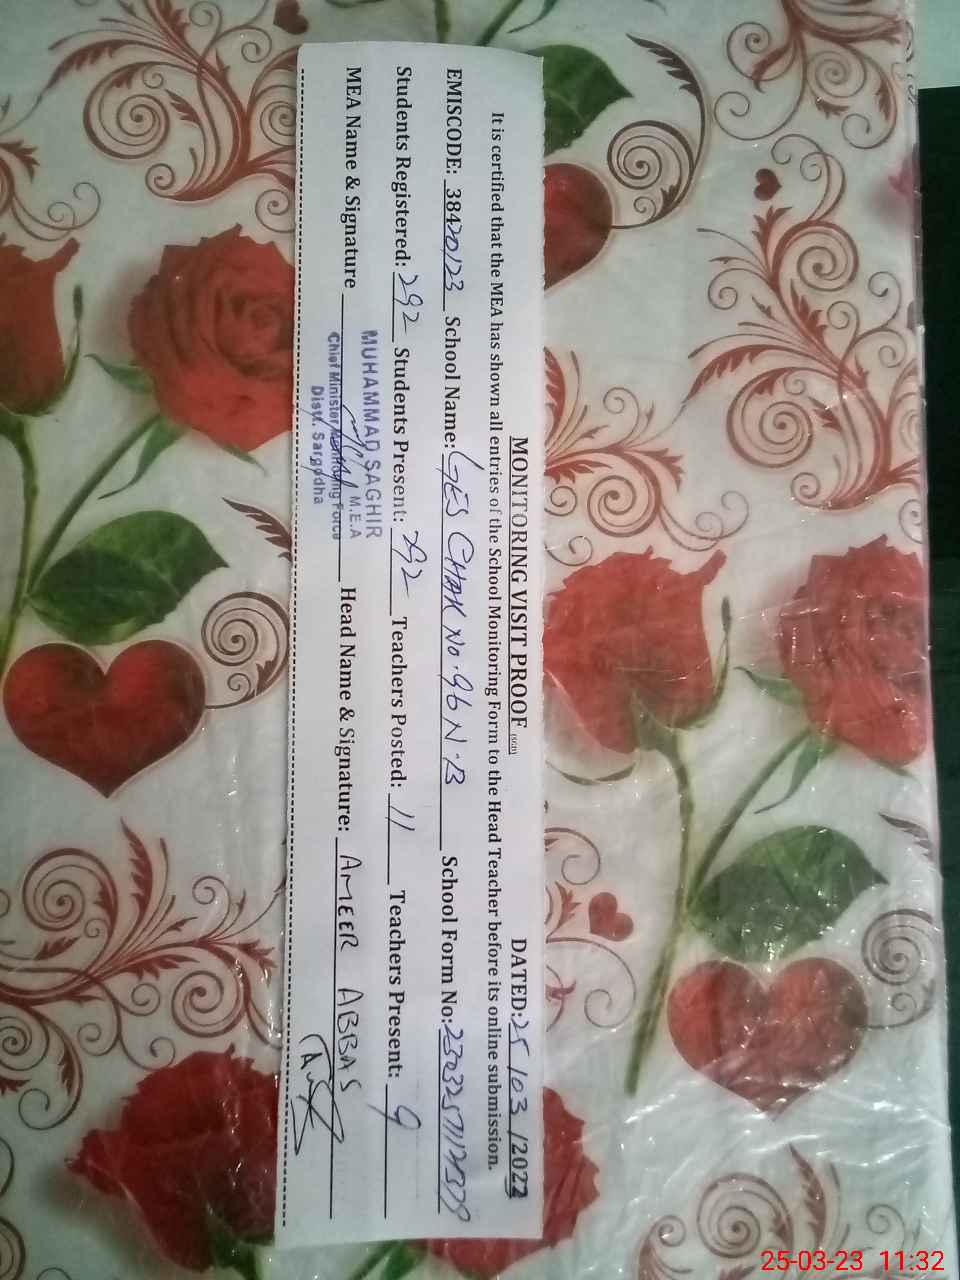 MONITORING VISIT PROOF (SGD) DATED: 25/03/2023
It is certified that the MEA has shown all entries of the School Monitoring Form to the Head Teacher before its online submission.
EMISCODE: 38420123 School Name: GES CHAK No. 96 N.B School Form No:
Students Registered: 292 Students Present: 292 Teachers Posted: 11 Teachers Present: 9
MEA Name & Signature Head Name & Signature: AMEER ABBAS
MUHAMMAD SAGHIR
M.E.A
Chief Minister Monitoring Force
Distt. Sargodha
25-03-23 11:32